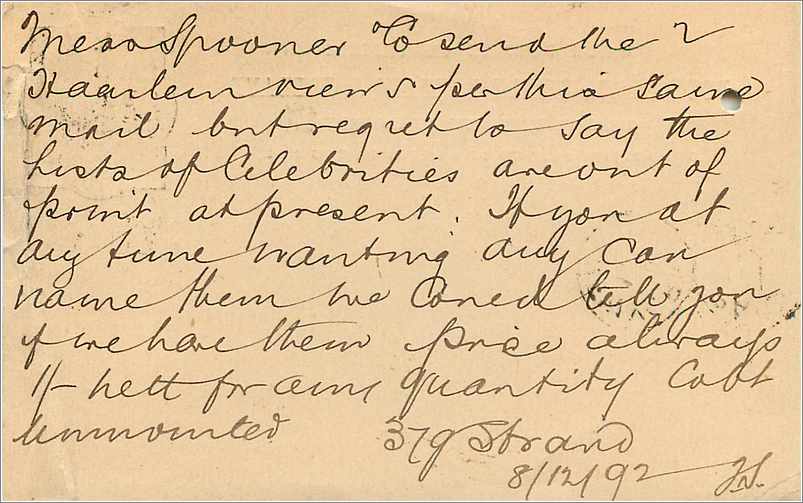 Mess Spooner & Co send the 2
Haarlem views per this same
mail but regret to say the
Lists of Celebrities are out of
print at present. If you at
any time wanting any can
name them we could tell you
if we have them price always
1/- nett for any quantity Cabt
unmounted 379 Strand
8/12/92 J.S.